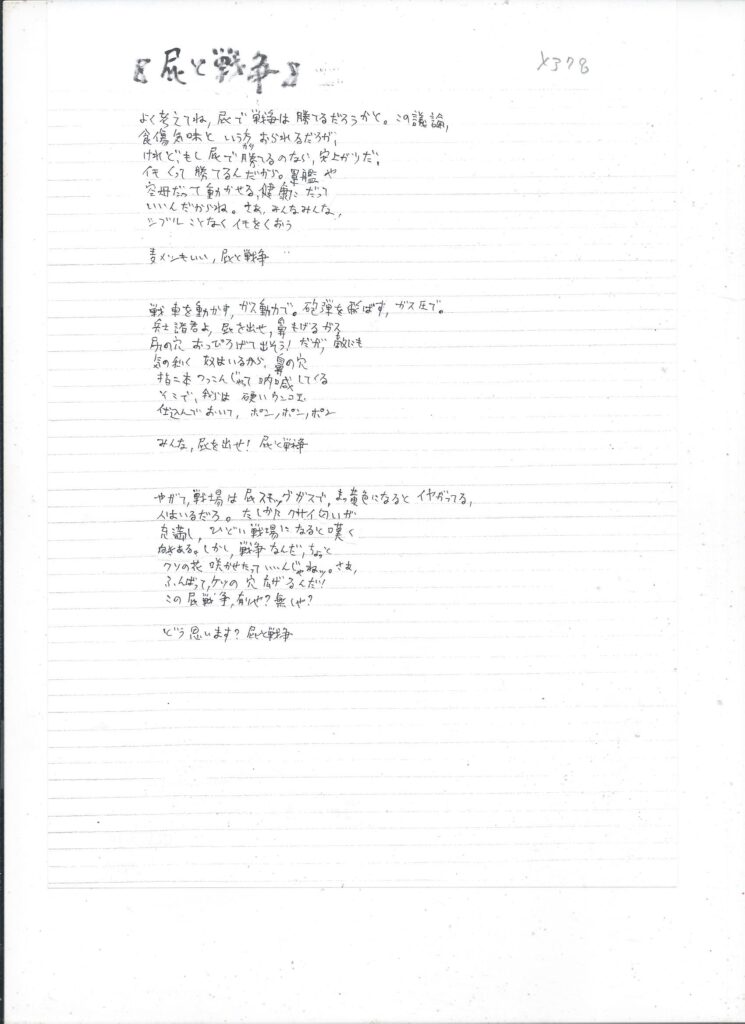 『屁と戦争』
X378
よく考えてね，屁で戦争は勝てるだろうかと。この議論，
食傷気味という方おられるだろが，
けれど，もし屁で勝てるのなら，安上がりだ，
イモくって勝てるんだから。軍艦や
空母だって動かせる，健康にだって
いいんだからね。さあ，みんなみんな，
シブルことなくイモをくおう
麦メシもいい，屁と戦争
戦車を動かす，ガス動力で。砲弾を飛ばす，ガス圧で。
兵士諸君よ，屁を出せ，鼻もげるかろ
尻の穴おっぴろげて出そう！だが，敵にも
気の利く奴はいるから，鼻の穴
指二本つっこんじゃって吶喊してくる
そこで，我らは硬いウンコ玉
仕込んでおいて，ポン，ポン，ポン
みんな，屁を出せ！屁と戦争
やがて，戦場は屁スモッグガスで，まっ黄色になるとイヤがってる，
人はいるだろ。たしかにクサイ匂いが
充満し，ひどい戦場になると嘆く
向きある。しかし，戦争なんだ，ちょっと
クソの花咲かせたっていいんじゃねッ。さあ，
ふんばって，ケツの穴広げるんだ！
この屁戦争，有りや？無しや？
どう思います？屁と戦争